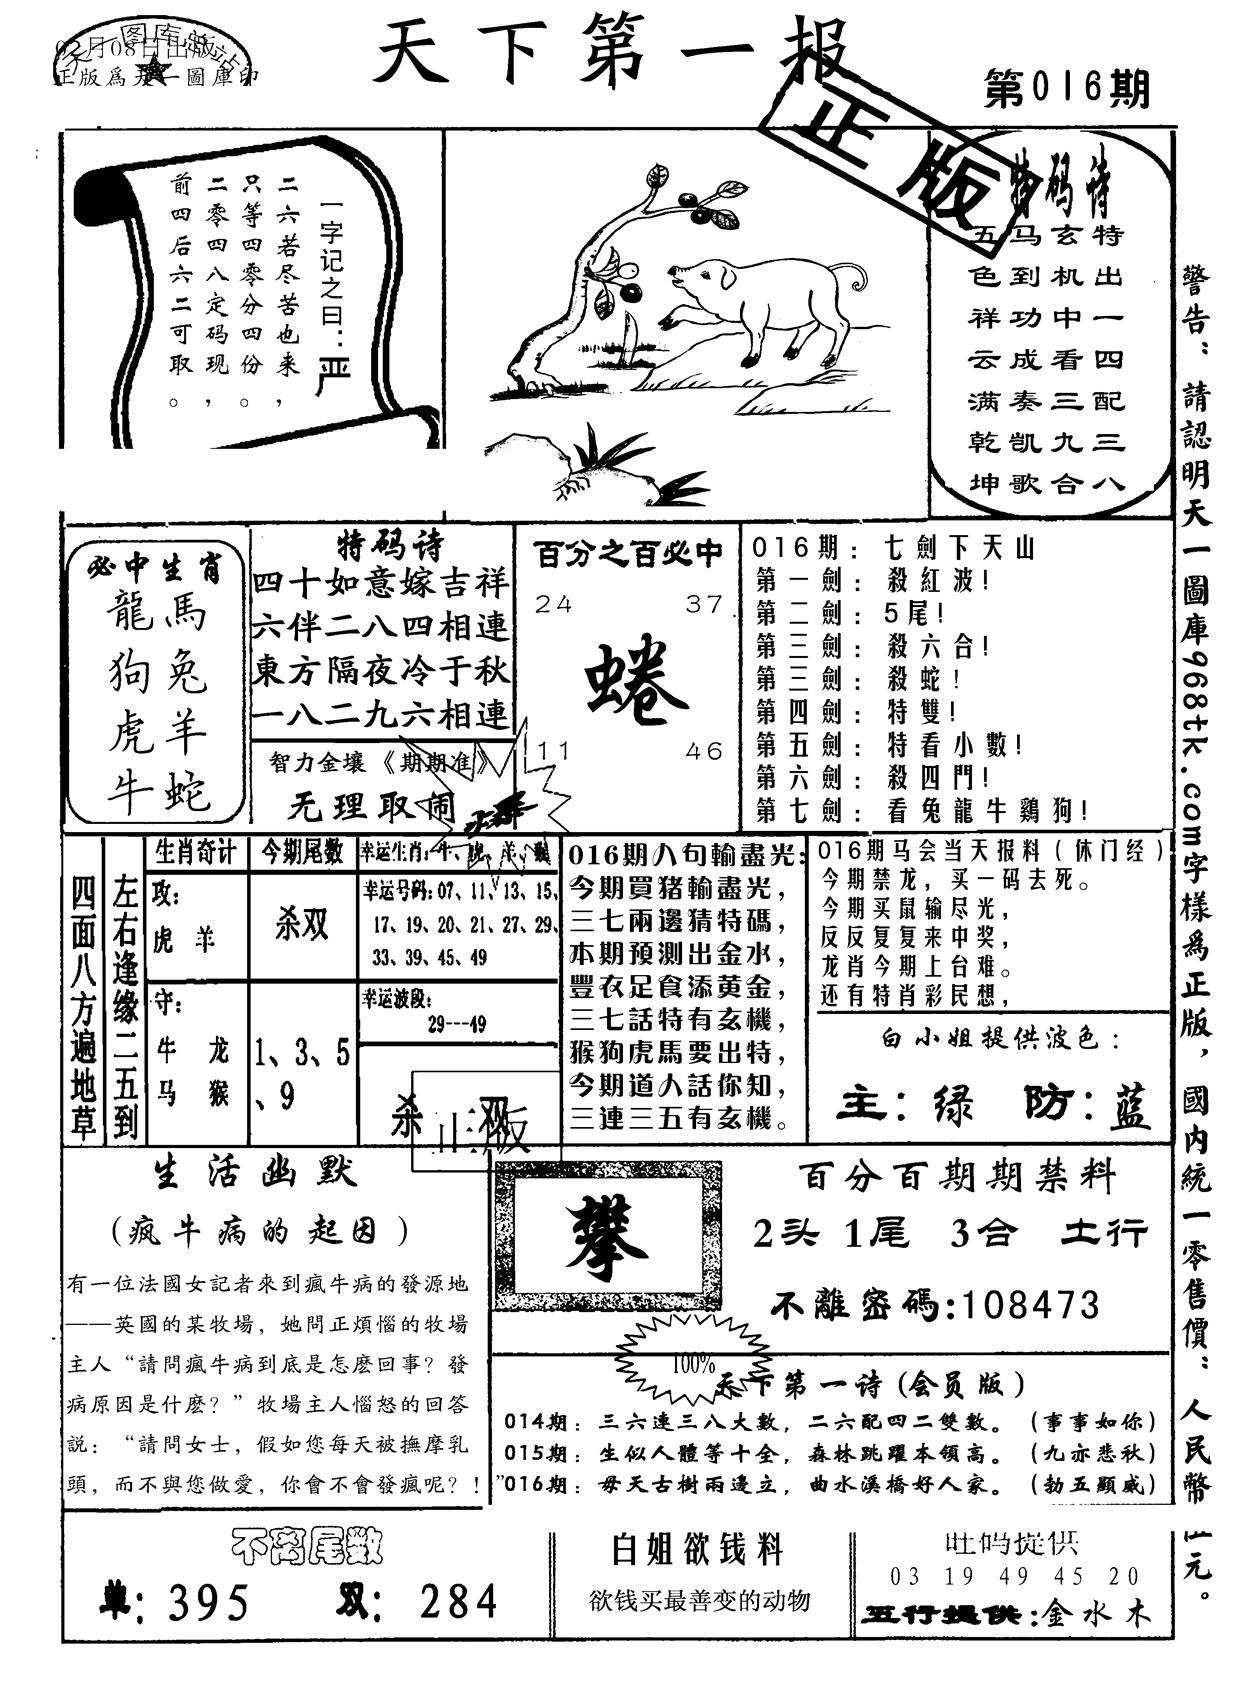 02月08日出版
正版爲天一圖庫印
天下第一报
第016期
正版
一字记之曰：严
二六若尽苦也来，
只等四零分四份。
二零四八定码现，
前四后六二可取。
特码诗
特出一四配三八
玄机中看三九合
马到功成奏凯歌
五色祥云满乾坤
警告：請認明天一圖庫968tk.com字樣爲正版，國内統一零售價：人民幣伍元。
必中生肖
龍馬
狗兔
虎羊
牛蛇
特码诗
四十如意嫁吉祥
六伴二八四相連
東方隔夜冷于秋
一八二九六相連
智力金壤《期期准》
无理取闹
百分之百必中
24 37
蜷
11 46
016期：七劍下天山
第一劍：殺紅波！
第二劍：5尾！
第三劍：殺六合！
第三劍：殺蛇！
第四劍：特雙！
第五劍：特看小數！
第六劍：殺四門！
第七劍：看兔龍牛鷄狗！
四面八方遍地草
左右逢缘二五到
生肖奇计
攻：
虎 羊
守：
牛 龙
马 猴
今期尾数
杀双
1、3、5
、9
幸运生肖：牛、虎、羊、猴
幸运号码：07、11、13、15、
17、19、20、21、27、29、
33、39、45、49
幸运波段：
29---49
杀 双
正版
016期八句輸盡光：
今期買猪輸盡光，
三七兩邊猜特碼，
本期預測出金水，
豐衣足食添黄金，
三七話特有玄機，
猴狗虎馬要出特，
今期道人話你知，
三連三五有玄機。
016期马会当天报料（休门经）
今期禁龙，买一码去死。
今期买鼠输尽光，
反反复复来中奖，
龙肖今期上台难。
还有特肖彩民想，
白小姐提供波色：
主：绿 防：蓝
生活幽默
(疯牛病的起因)
有一位法國女記者來到瘋牛病的發源地
——英國的某牧場，她問正煩惱的牧場
主人“請問瘋牛病到底是怎麼回事？發
病原因是什麼？”牧場主人惱怒的回答
説：“請問女士，假如您每天被撫摩乳
頭，而不與您做愛，你會不會發瘋呢？！”
攀
百分百期期禁料
2头 1尾 3合 土行
不離密碼:108473
100%
天下第一诗(会员版)
014期：三六連三八大數，二六配四二雙數。（事事如你）
015期：生似人體等十全，森林跳躍本領高。（九亦悲秋）
016期：毋天古樹兩邊立，曲水溪橋好人家。（勃五顯威）
不离尾数
单：395 双：284
白姐欲钱料
欲钱买最善变的动物
旺码提供
03 19 49 45 20
五行提供:金水木